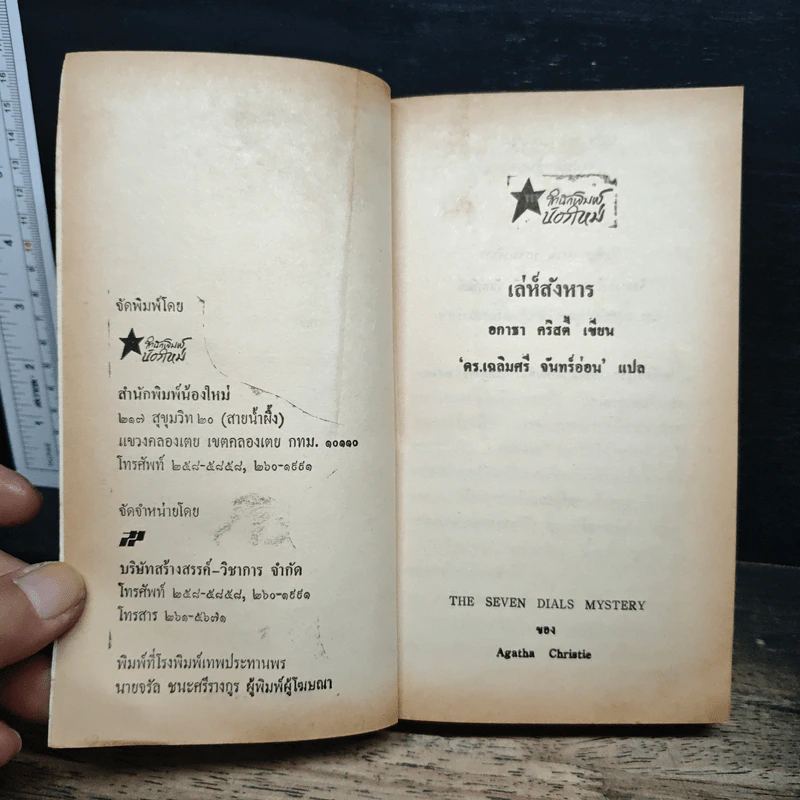 จัดพิมพ์โดย
สำนักพิมพ์
น้องใหม่
สำนักพิมพ์น้องใหม่
๒๑๗ สุขุมวิท ๒๐ (สายน้ำผึ้ง)
แขวงคลองเตย เขตคลองเตย กทม. ๑๐๑๑๐
โทรศัพท์ ๒๕๘-๕๘๕๘, ๒๖๐-๑๙๙๑
จัดจำหน่ายโดย
บริษัทสร้างสรรค์-วิชาการ จำกัด
โทรศัพท์ ๒๕๘-๕๘๕๘, ๒๖๐-๑๙๙๑
โทรสาร ๒๖๑-๕๖๗๑
พิมพ์ที่โรงพิมพ์เทพประทานพร
นายจรัล ชนะศรีรางกูร ผู้พิมพ์ผู้โฆษณา
สำนักพิมพ์
น้องใหม่
เล่ห์สังหาร
อกาธา คริสตี้ เขียน
'ดร.เฉลิมศรี จันทร์อ่อน' แปล
THE SEVEN DIALS MYSTERY
ของ
Agatha Christie